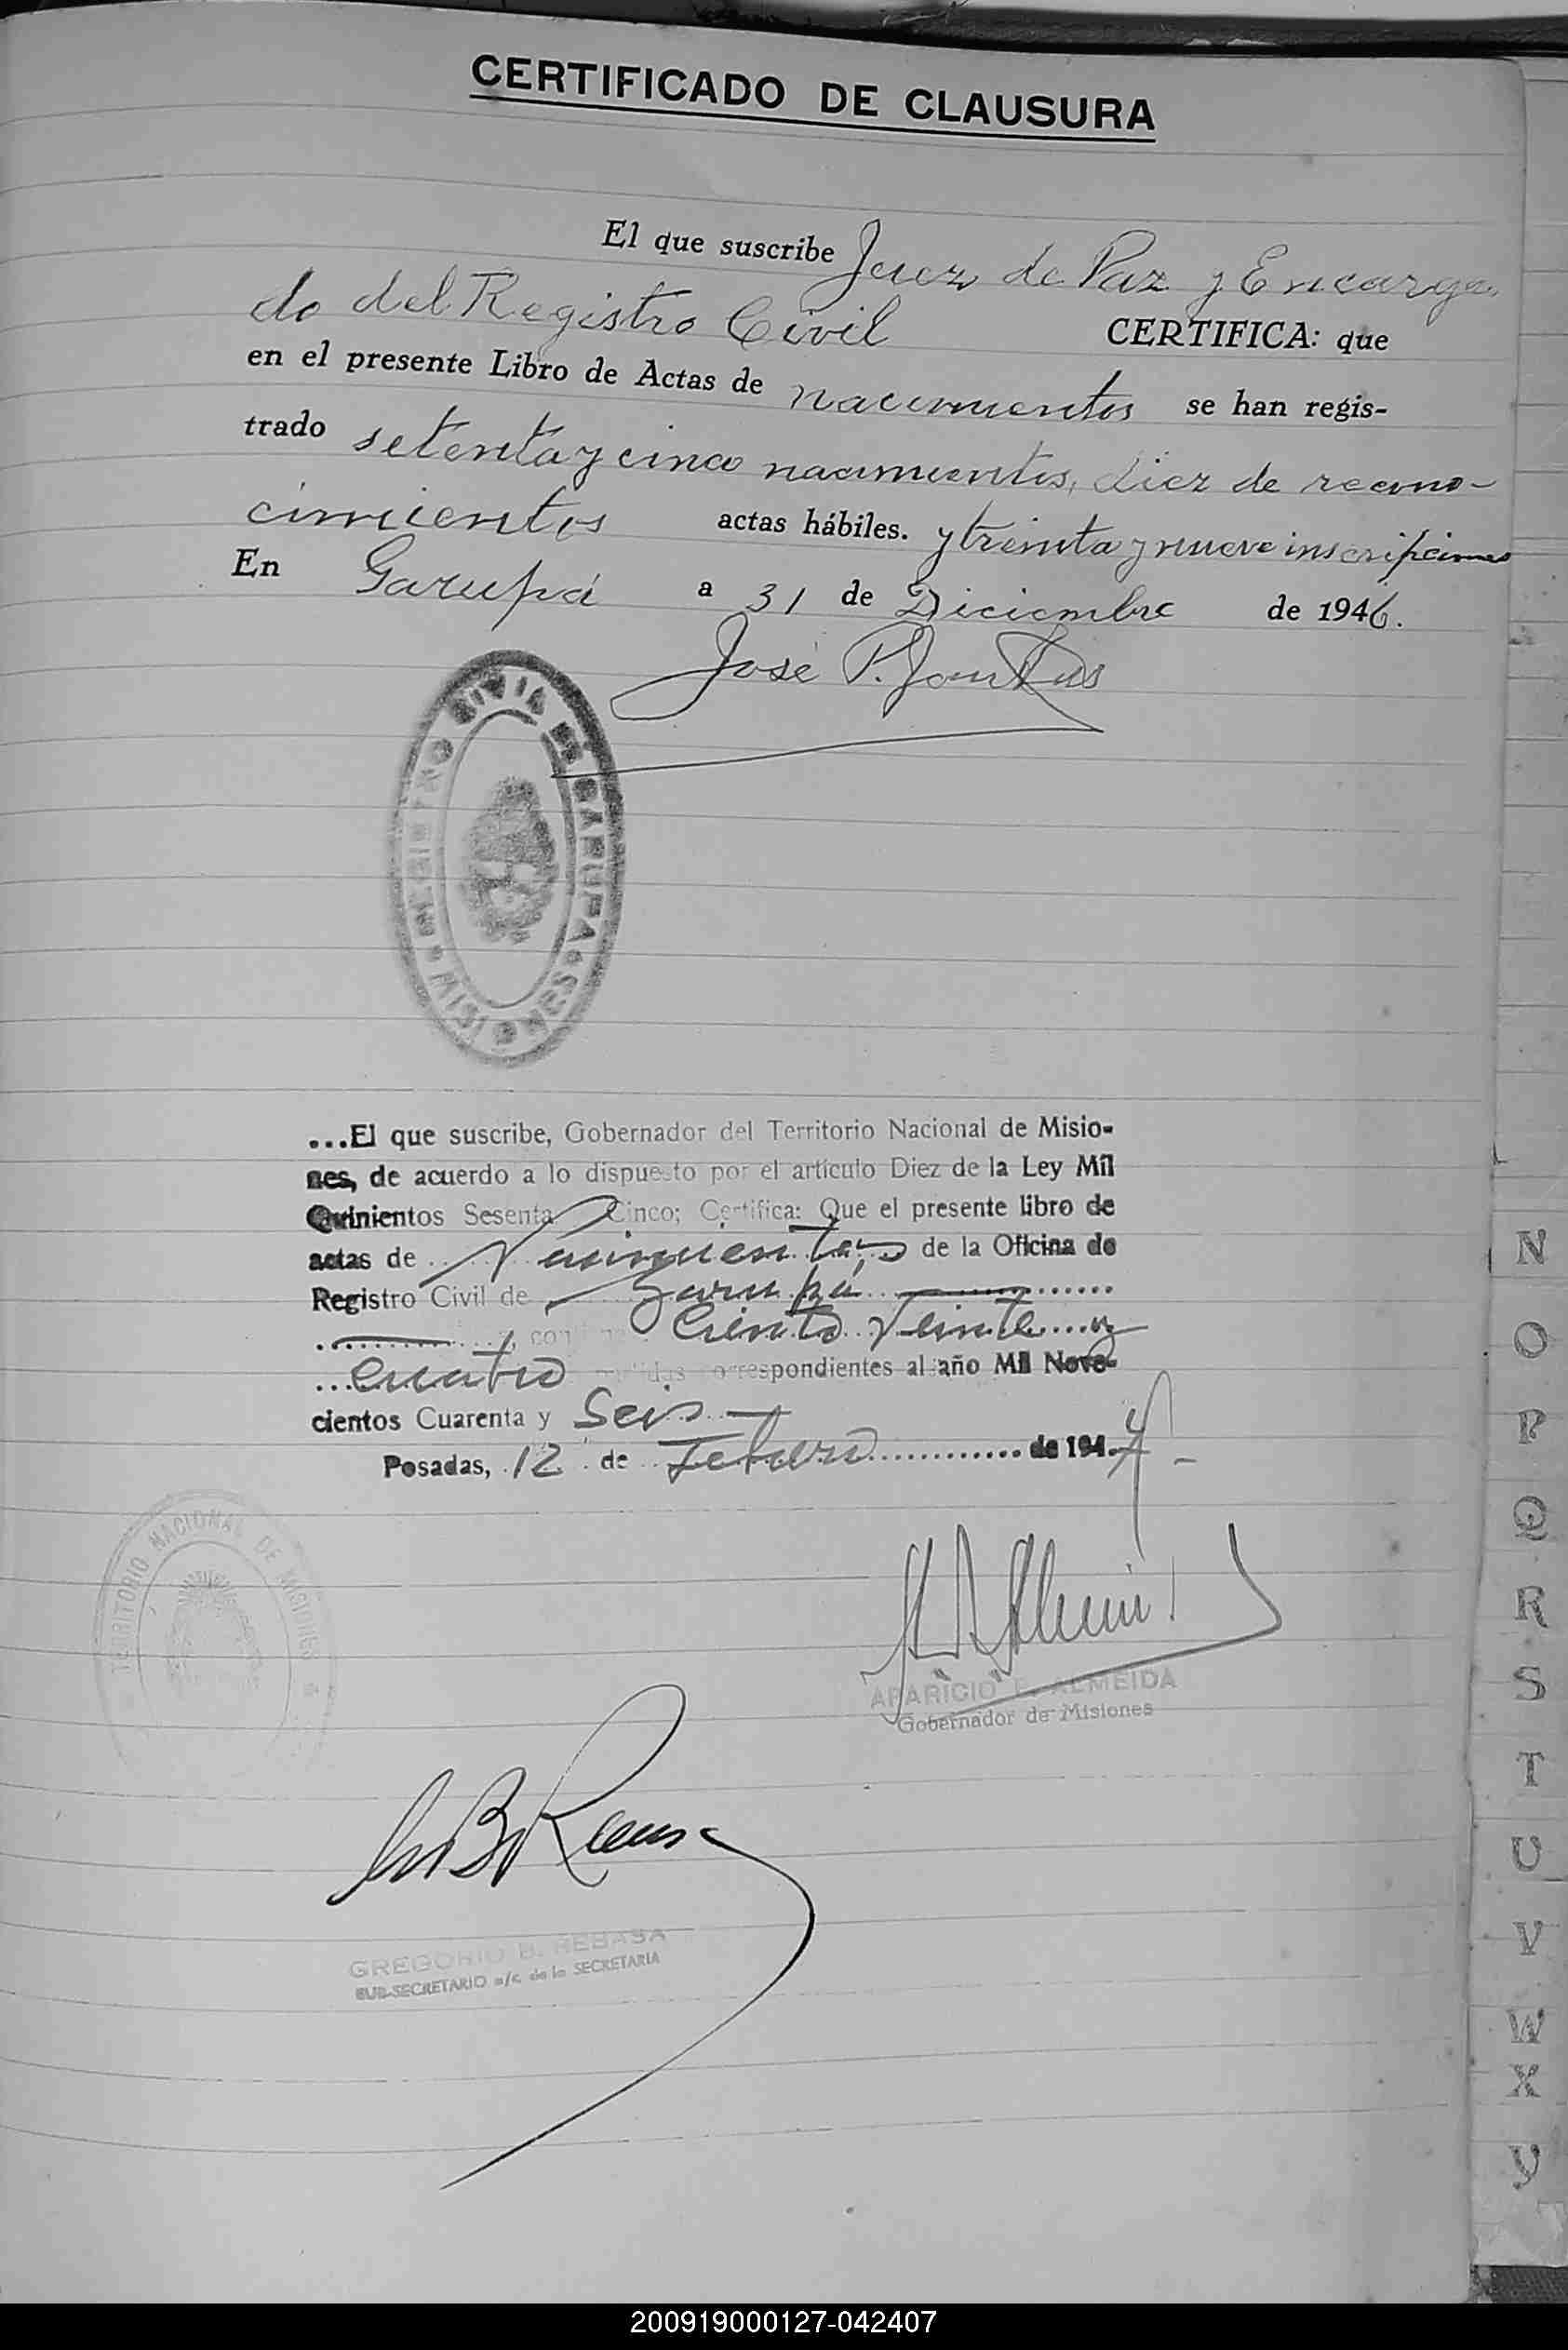 CERTIFICADO DE CLAUSURA
El que suscribe Juez de Paz y Encarga
do del Registro Civil CERTIFICA: que
en el presente Libro de Actas de nacimientos se han regis-
trado setenta y cinco nacimientos, diez de recono-
cimientos actas hábiles. y treinta y nueve inscripciones
En Garupá a 31 de Diciembre de 1946.
José P.
REGISTRO CIVIL DE GARUPA
MISIONES
...El que suscribe, Gobernador del Territorio Nacional de Misio-
nes, de acuerdo a lo dispuesto por el artículo Diez de la Ley Mil
Quinientos Sesenta y Cinco; Certifica: Que el presente libro de
actas de Nacimientos, de la Oficina de
Registro Civil de Garupá
Ciento Veinte y
cuatro partidas correspondientes al año Mil Nove-
cientos Cuarenta y Seis
Posadas, 12 de Febrero de 1947
TERRITORIO NACIONAL DE MISIONES
APARICIO E. ALMEIDA
Gobernador de Misiones
GREGORIO B. REBASA
SUB-SECRETARIO a/c. de la SECRETARIA
N
O
P
Q
R
S
T
U
V
W
X
Y
200919000127-042407